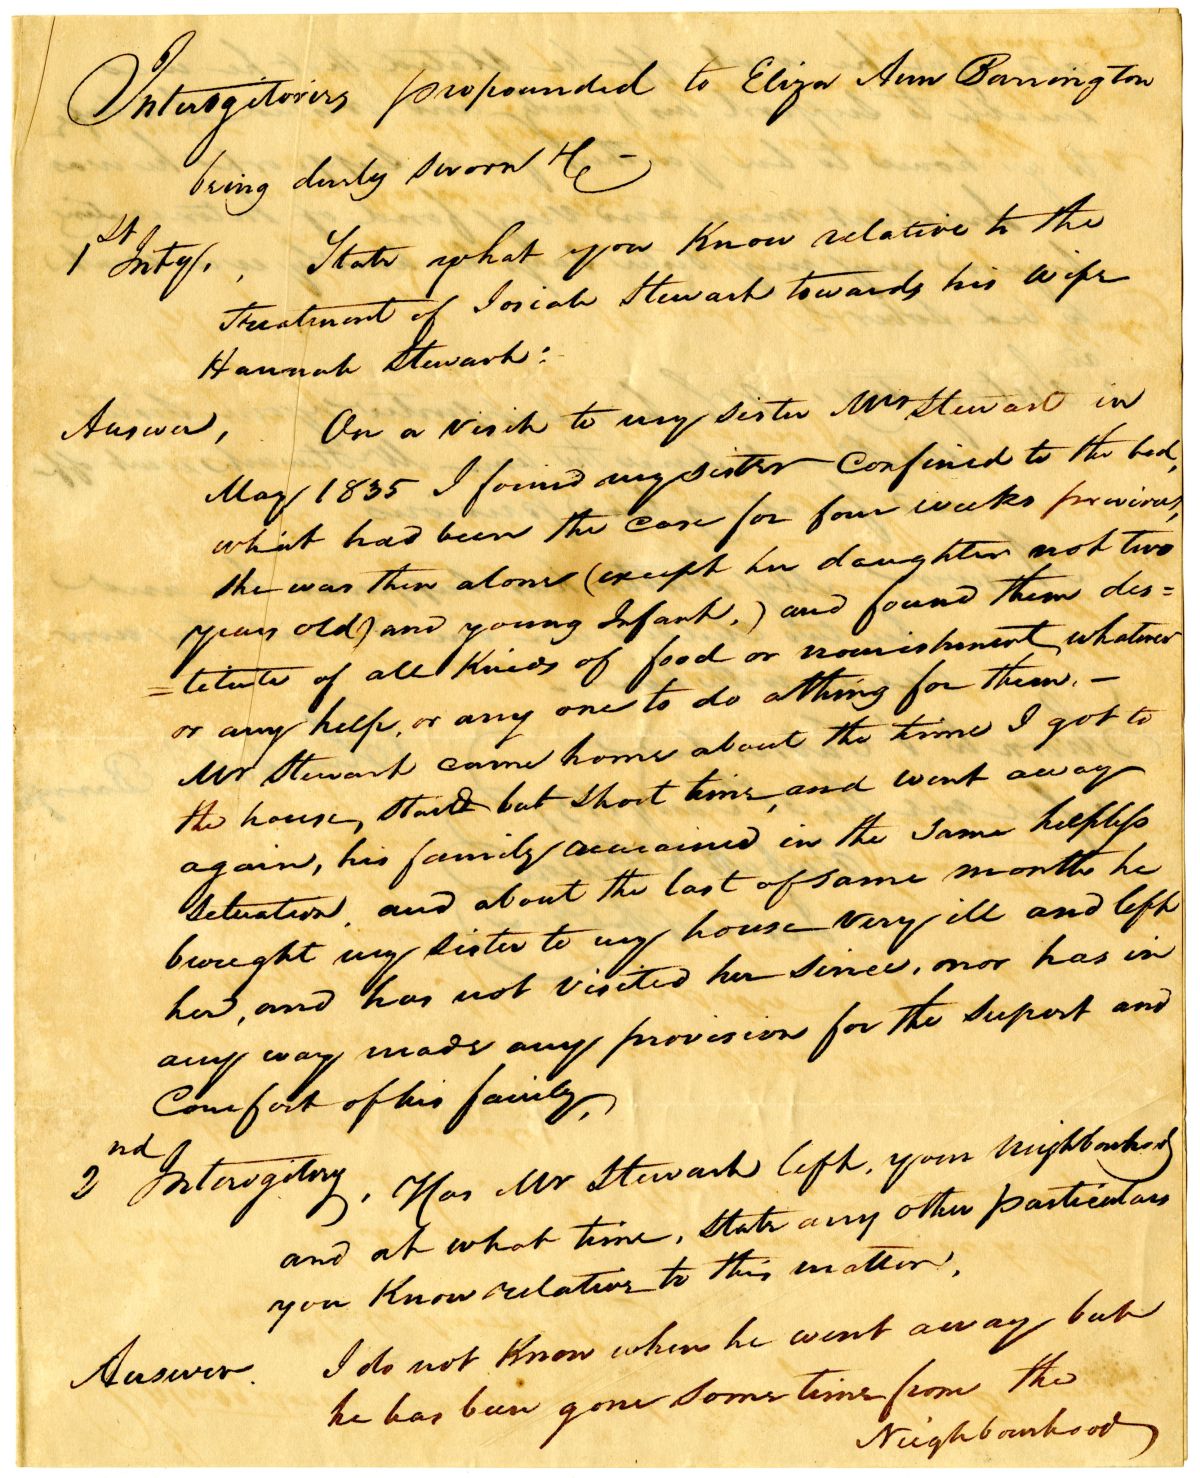 Interogitories propounded to Eliza Ann Barrington
being duly sworn &c —
1st Inty. , State what you Know relative to the
Treatment of Josiah Stewart towards his wife
Hannah Stewart:
Answer, On a visit to my sister Mrs Stewart in
May 1835 I found my sister Confined to the bed,
what had been the case for four weeks previous,
she was then alone (except her daughter not two
years old) and young Infant,) and found them des=
=titute of all Kinds of food or nourishment whatever
or any help, or any one to do a thing for them. —
Mr Stewart came home about the time I got to
the house, staid but short time, and went away
again, his family remained in the same helpless
situation, and about the last of same month he
brought my sister to my house very ill and left
her, and has not visited her since, nor has in
any way made any provision for the suport and
Comfort of his family,
2nd Interogitory, Has Mr Stewart left, your Neighbourhood
and at what time, State any other particulars
you Know relative to this matter,
Answer. I do not Know when he went away but
he has been gone some time from the
Neighbourhood